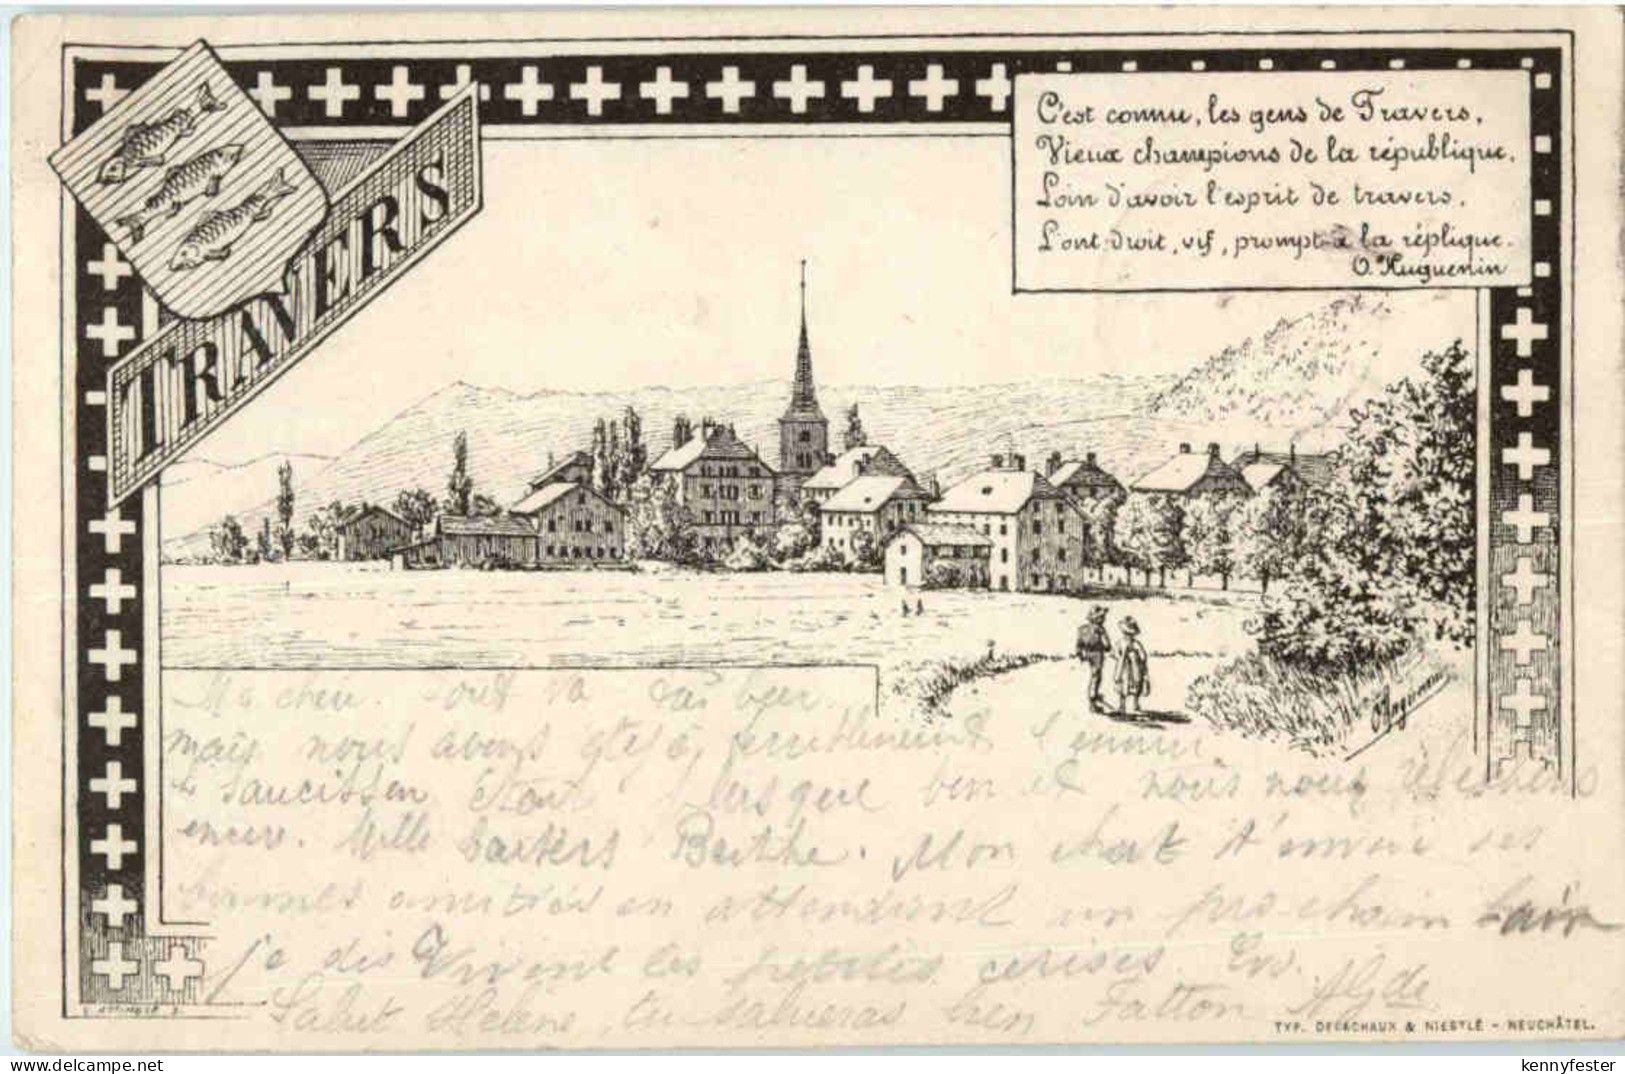 TRAVERS
C'est connu, les gens de Travers,
Vieux champions de la république,
Loin d'avoir l'esprit de travers,
L'ont droit, vif, prompt à la réplique.
O. Huguenin
O Huguenin
Ma cher. tout va
mais nous avons l'ennui
saucisson lorsque ben et nous nous
encor. Mille baisers Berthe. Mon chat t'envoie ses
bonnes amitiés en attendant un prochain
je dis Vivent les petites cerises.
Salut Helene, tu salueras bien
TYP. DELACHAUX & NIESTLÉ - NEUCHÂTEL.
kennyfester